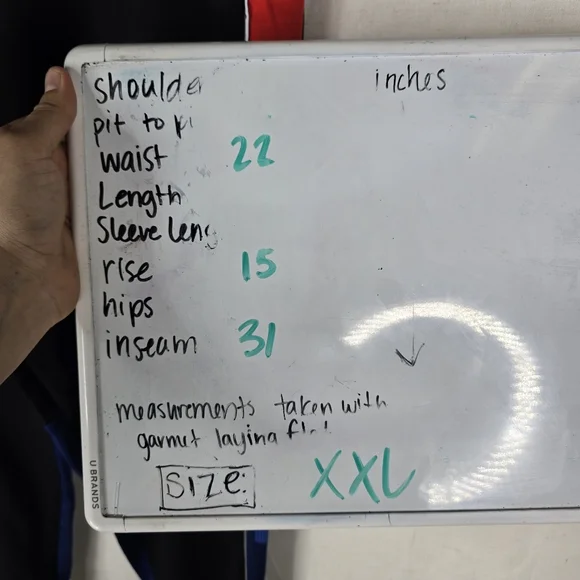 shoulder inches
pit to pi
waist 22
Length
Sleeve Leng
rise 15
hips
inseam 31
measurements taken with
garmet laying fl
SIZE: XXL
U BRANDS